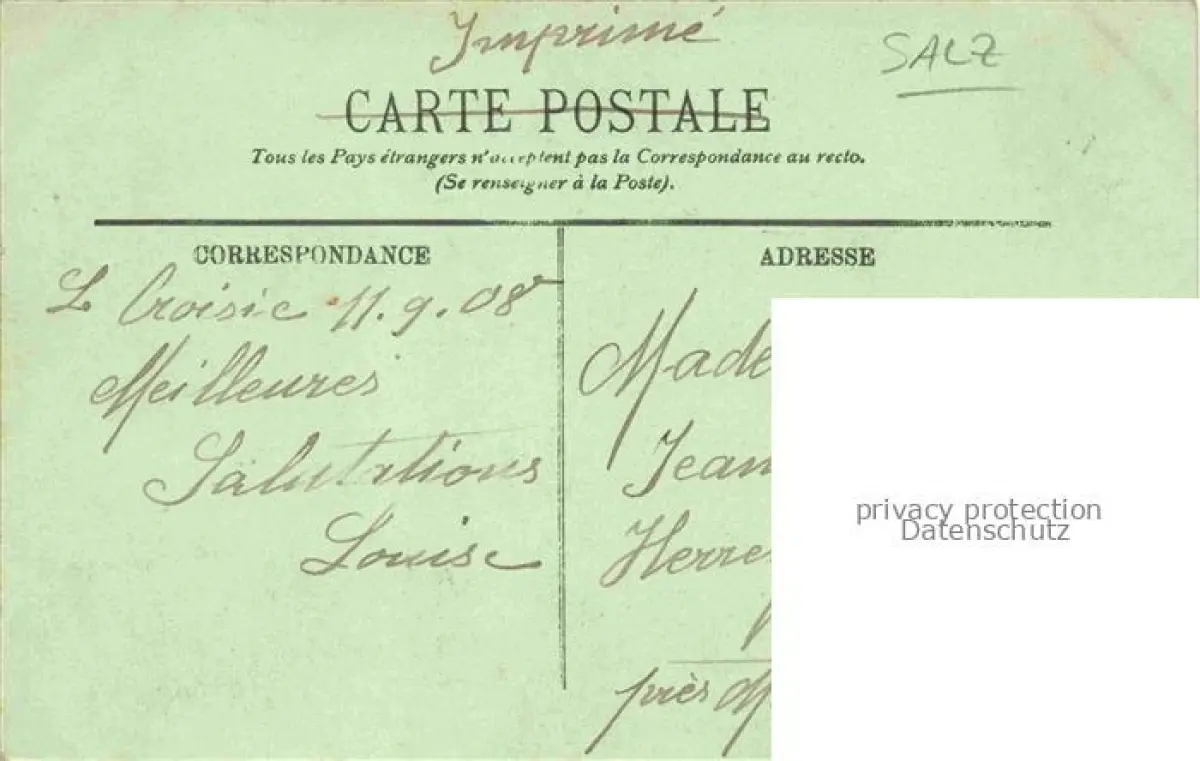 Imprimé
SALZ
CARTE POSTALE
Tous les Pays étrangers n'acceptent pas la Correspondance au recto.
(Se renseigner à la Poste).
CORRESPONDANCE
L Croisic 11.9.08
Meilleures
Salutations
Louise
ADRESSE
Made
Jean
Herre
près
privacy protection
Datenschutz